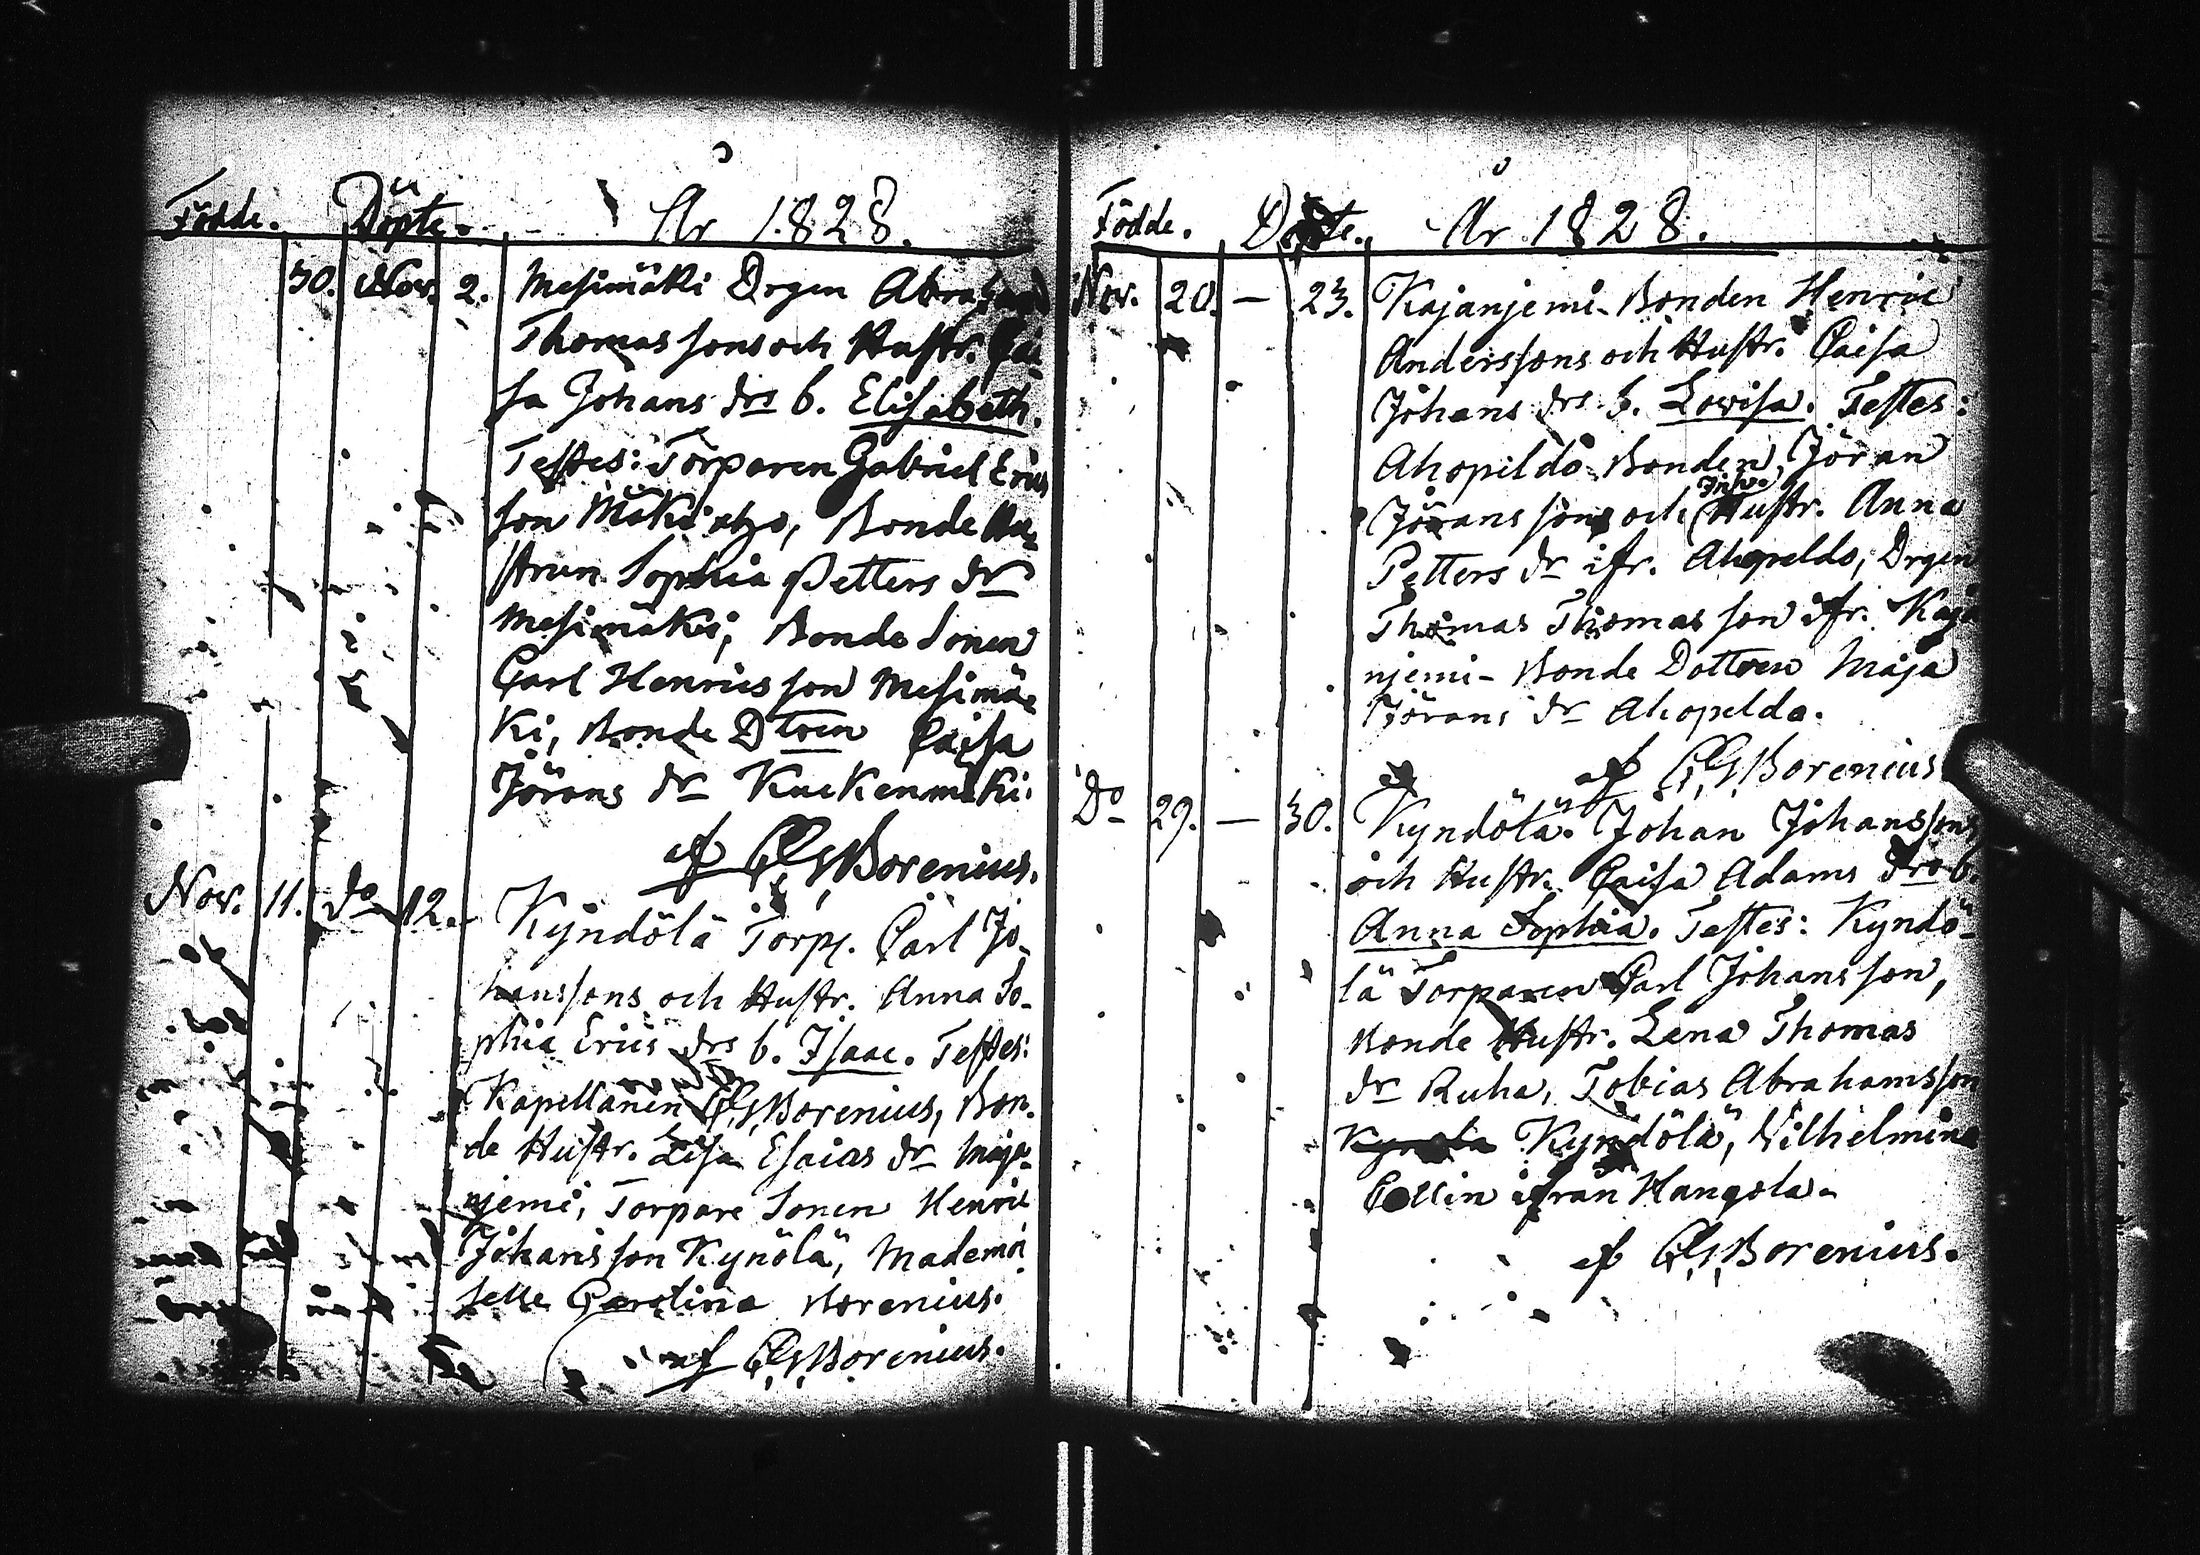 Födde. Döpte. År 1828.
30. Nov. 2. Mesimäki Drgen Abraham
Thomassons och Hustr. Cai
sa Johans drs b. Elisabeth.
Testes: Torparen Gabriel Erics
son Mäki, Bonde Hu
strun Sophia Petters dr
Mesimäki, Bonde Sonen
Carl Henricsson Mesimä
ki, Bonde Dtren Caisa
Jörans dr Kuckenmäki.
af CGBorenius.
Nov. 11. do 12. Kyndölä Torp. Carl Jo-
hanssons och Hustr. Anna So-
phia Erics drs b. Isaac. Testes:
Kapellanen CGBorenius, Bon-
de Hustr. Lisa Esaias dr Maja-
njemi, Torpare Sonen Henric
Johansson Kynölä, Mademoi
selle Carolina Borenius.
af CGBorenius.
Födde. Döpte. År 1828.
Nov. 20. — 23. Kajanjemi Bonden Henric
Anderssons och Hustr. Caisa
Johans drs b. Lovisa. Testes:
Ahopeldo Bonden Jöran
Jöransson och Hustr. Anna
Petters dr ifr. Ahopeldo, Drgen
Thomas Thomasson ifr. Kaja
njemi - Bonde Dottren Maja
Jörans dr Ahopeldo.
af CGBorenius
Do 29. — 30. Kyndölä. Johan Johanssons
och Hustr. Caisa Adams drs b.
Anna Sophia. Testes: Kyndö-
lä Torparen Carl Johansson,
Bonde Hustr. Lena Thomas
dr Ruha, Tobias Abrahamsson
Kyndölä, Vilhelmina
Collin ifrån Kangola.
af CGBorenius.